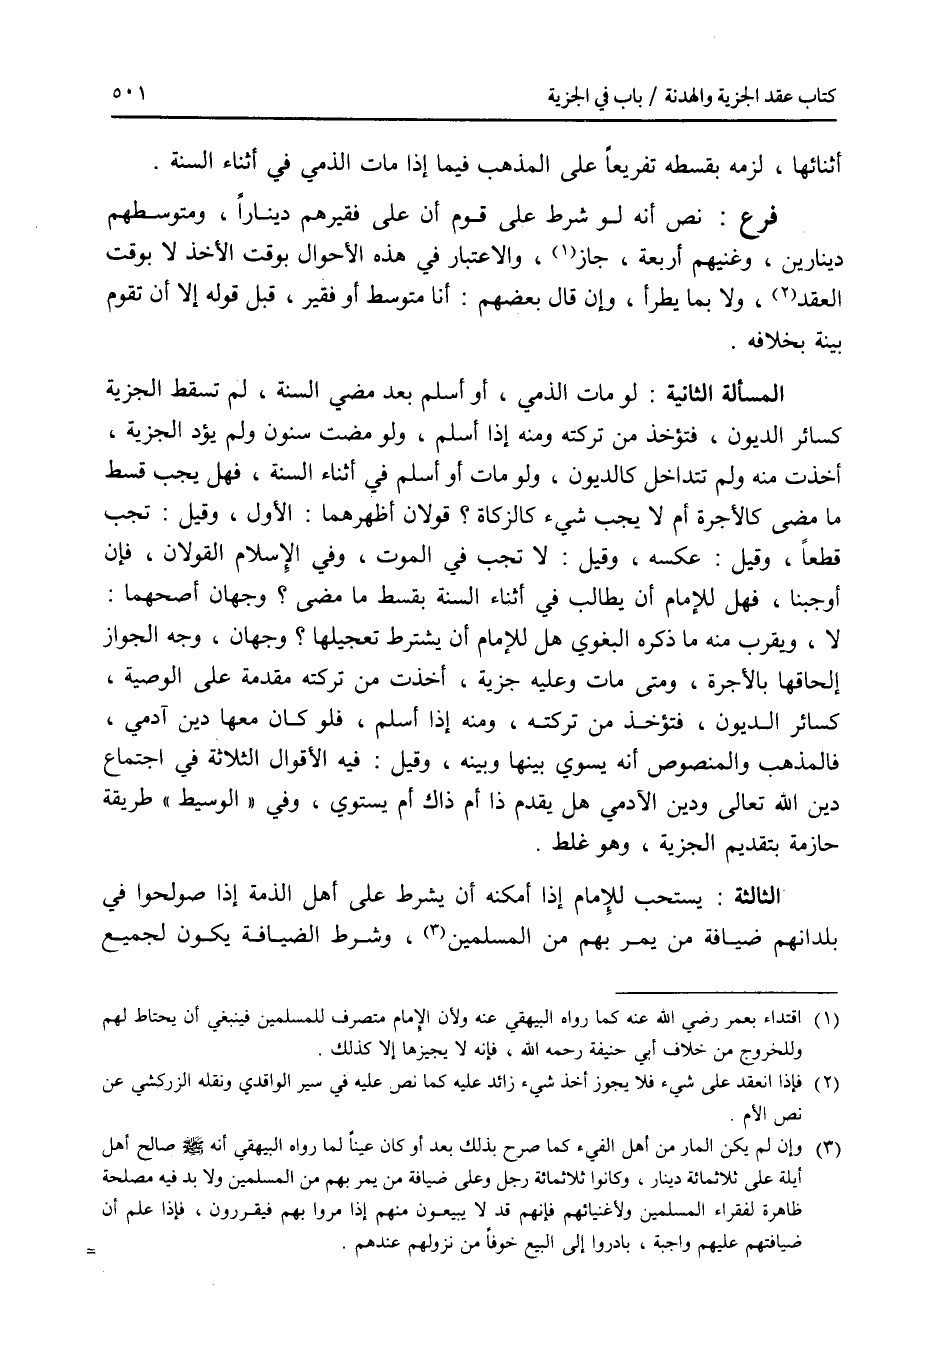 كتاب عقد الجزية والهدنة / باب في الجزية ٥٠١
أثنائها ، لزمه بقسطه تفريعاً على المذهب فيما إذا مات الذمي في أثناء السنة .
فرع : نص أنه لو شرط على قوم أن على فقيرهم ديناراً ، ومتوسطهم
دينارين ، وغنيهم أربعة ، جاز(١) ، والاعتبار في هذه الأحوال بوقت الأخذ لا بوقت
العقد(٢) ، ولا بما يطرأ ، وإن قال بعضهم : أنا متوسط أو فقير ، قبل قوله إلا أن تقوم
بينة بخلافه .
المسألة الثانية : لو مات الذمي ، أو أسلم بعد مضي السنة ، لم تسقط الجزية
كسائر الديون ، فتؤخذ من تركته ومنه إذا أسلم ، ولو مضت سنون ولم يؤد الجزية ،
أخذت منه ولم تتداخل كالديون ، ولو مات أو أسلم في أثناء السنة ، فهل يجب قسط
ما مضى كالأجرة أم لا يجب شيء كالزكاة ؟ قولان أظهرهما : الأول ، وقيل : تجب
قطعاً ، وقيل : عكسه ، وقيل : لا تجب في الموت ، وفي الإسلام القولان ، فإن
أوجبنا ، فهل للإمام أن يطالب في أثناء السنة بقسط ما مضى ؟ وجهان أصحهما :
لا ، ويقرب منه ما ذكره البغوي هل للإمام أن يشترط تعجيلها ؟ وجهان ، وجه الجواز
إلحاقها بالأجرة ، ومتى مات وعليه جزية ، أخذت من تركته مقدمة على الوصية ،
كسائر الديون ، فتؤخذ من تركته ، ومنه إذا أسلم ، فلو كان معها دين آدمي ،
فالمذهب والمنصوص أنه يسوي بينها وبينه ، وقيل : فيه الأقوال الثلاثة في اجتماع
دين الله تعالى ودين الآدمي هل يقدم ذا أم ذاك أم يستوي ، وفي « الوسيط » طريقة
حازمة بتقديم الجزية ، وهو غلط .
الثالثة : يستحب للإمام إذا أمكنه أن يشرط على أهل الذمة إذا صولحوا في
بلدانهم ضيافة من يمر بهم من المسلمين(٣) ، وشرط الضيافة يكون لجميع
(١) اقتداء بعمر رضي الله عنه كما رواه البيهقي عنه ولأن الإمام متصرف للمسلمين فينبغي أن يحتاط لهم
وللخروج من خلاف أبي حنيفة رحمه الله ، فإنه لا يجيزها إلا كذلك .
(٢) فإذا انعقد على شيء فلا يجوز أخذ شيء زائد عليه كما نص عليه في سير الواقدي ونقله الزركشي عن
نص الأم .
(٣) وإن لم يكن المار من أهل الفيء كما صرح بذلك بعد أو كان عيناً لما رواه البيهقي أنه ﷺ صالح أهل
أيلة على ثلاثمائة دينار ، وكانوا ثلاثمائة رجل وعلى ضيافة من يمر بهم من المسلمين ولا بد فيه مصلحة
ظاهرة لفقراء المسلمين ولأغنيائهم فإنهم قد لا يبيعون منهم إذا مروا بهم فيقررون ، فإذا علم أن
ضيافتهم عليهم واجبة ، بادروا إلى البيع خوفاً من نزولهم عندهم . =